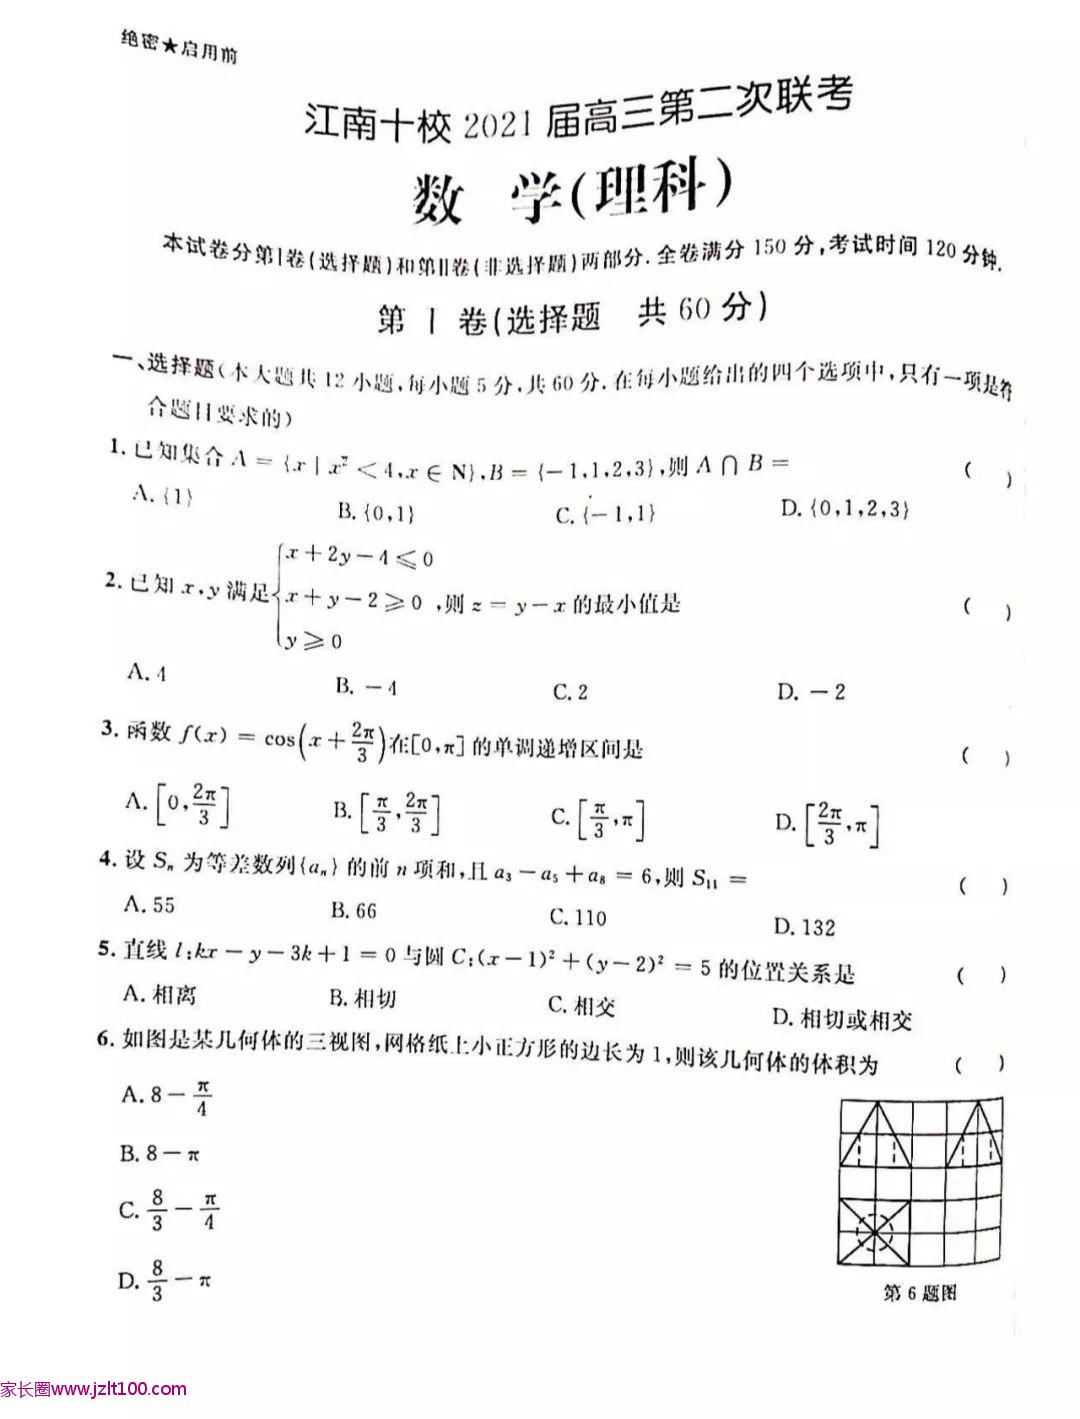 绝密★启用前
江南十校2021届高三第二次联考
数 学(理科)
本试卷分第Ⅰ卷(选择题)和第Ⅱ卷(非选择题)两部分.全卷满分150分,考试时间120分钟.
第Ⅰ卷(选择题 共60分)
一、选择题(本大题共12小题,每小题5分,共60分.在每小题给出的四个选项中,只有一项是符
合题目要求的)
1.已知集合A={x|x²<4,x∈N},B={-1,1,2,3},则A∩B= ( )
A.{1} B.{0,1} C.{-1,1} D.{0,1,2,3}
2.已知x,y满足{x+2y-4≤0 x+y-2≥0 y≥0,则z=y-x的最小值是 ( )
A.4 B.-4 C.2 D.-2
3.函数f(x)=cos(x+2π/3)在[0,π]的单调递增区间是 ( )
A.[0,2π/3] B.[π/3,2π/3] C.[π/3,π] D.[2π/3,π]
4.设Sₙ为等差数列{aₙ}的前n项和,且a₃-a₅+a₈=6,则S₁₁= ( )
A.55 B.66 C.110 D.132
5.直线l:kx-y-3k+1=0与圆C:(x-1)²+(y-2)²=5的位置关系是 ( )
A.相离 B.相切 C.相交 D.相切或相交
6.如图是某几何体的三视图,网格纸上小正方形的边长为1,则该几何体的体积为 ( )
A.8-π/4
B.8-π
C.8/3-π/4
D.8/3-π
第6题图
家长圈www.jzlt100.com